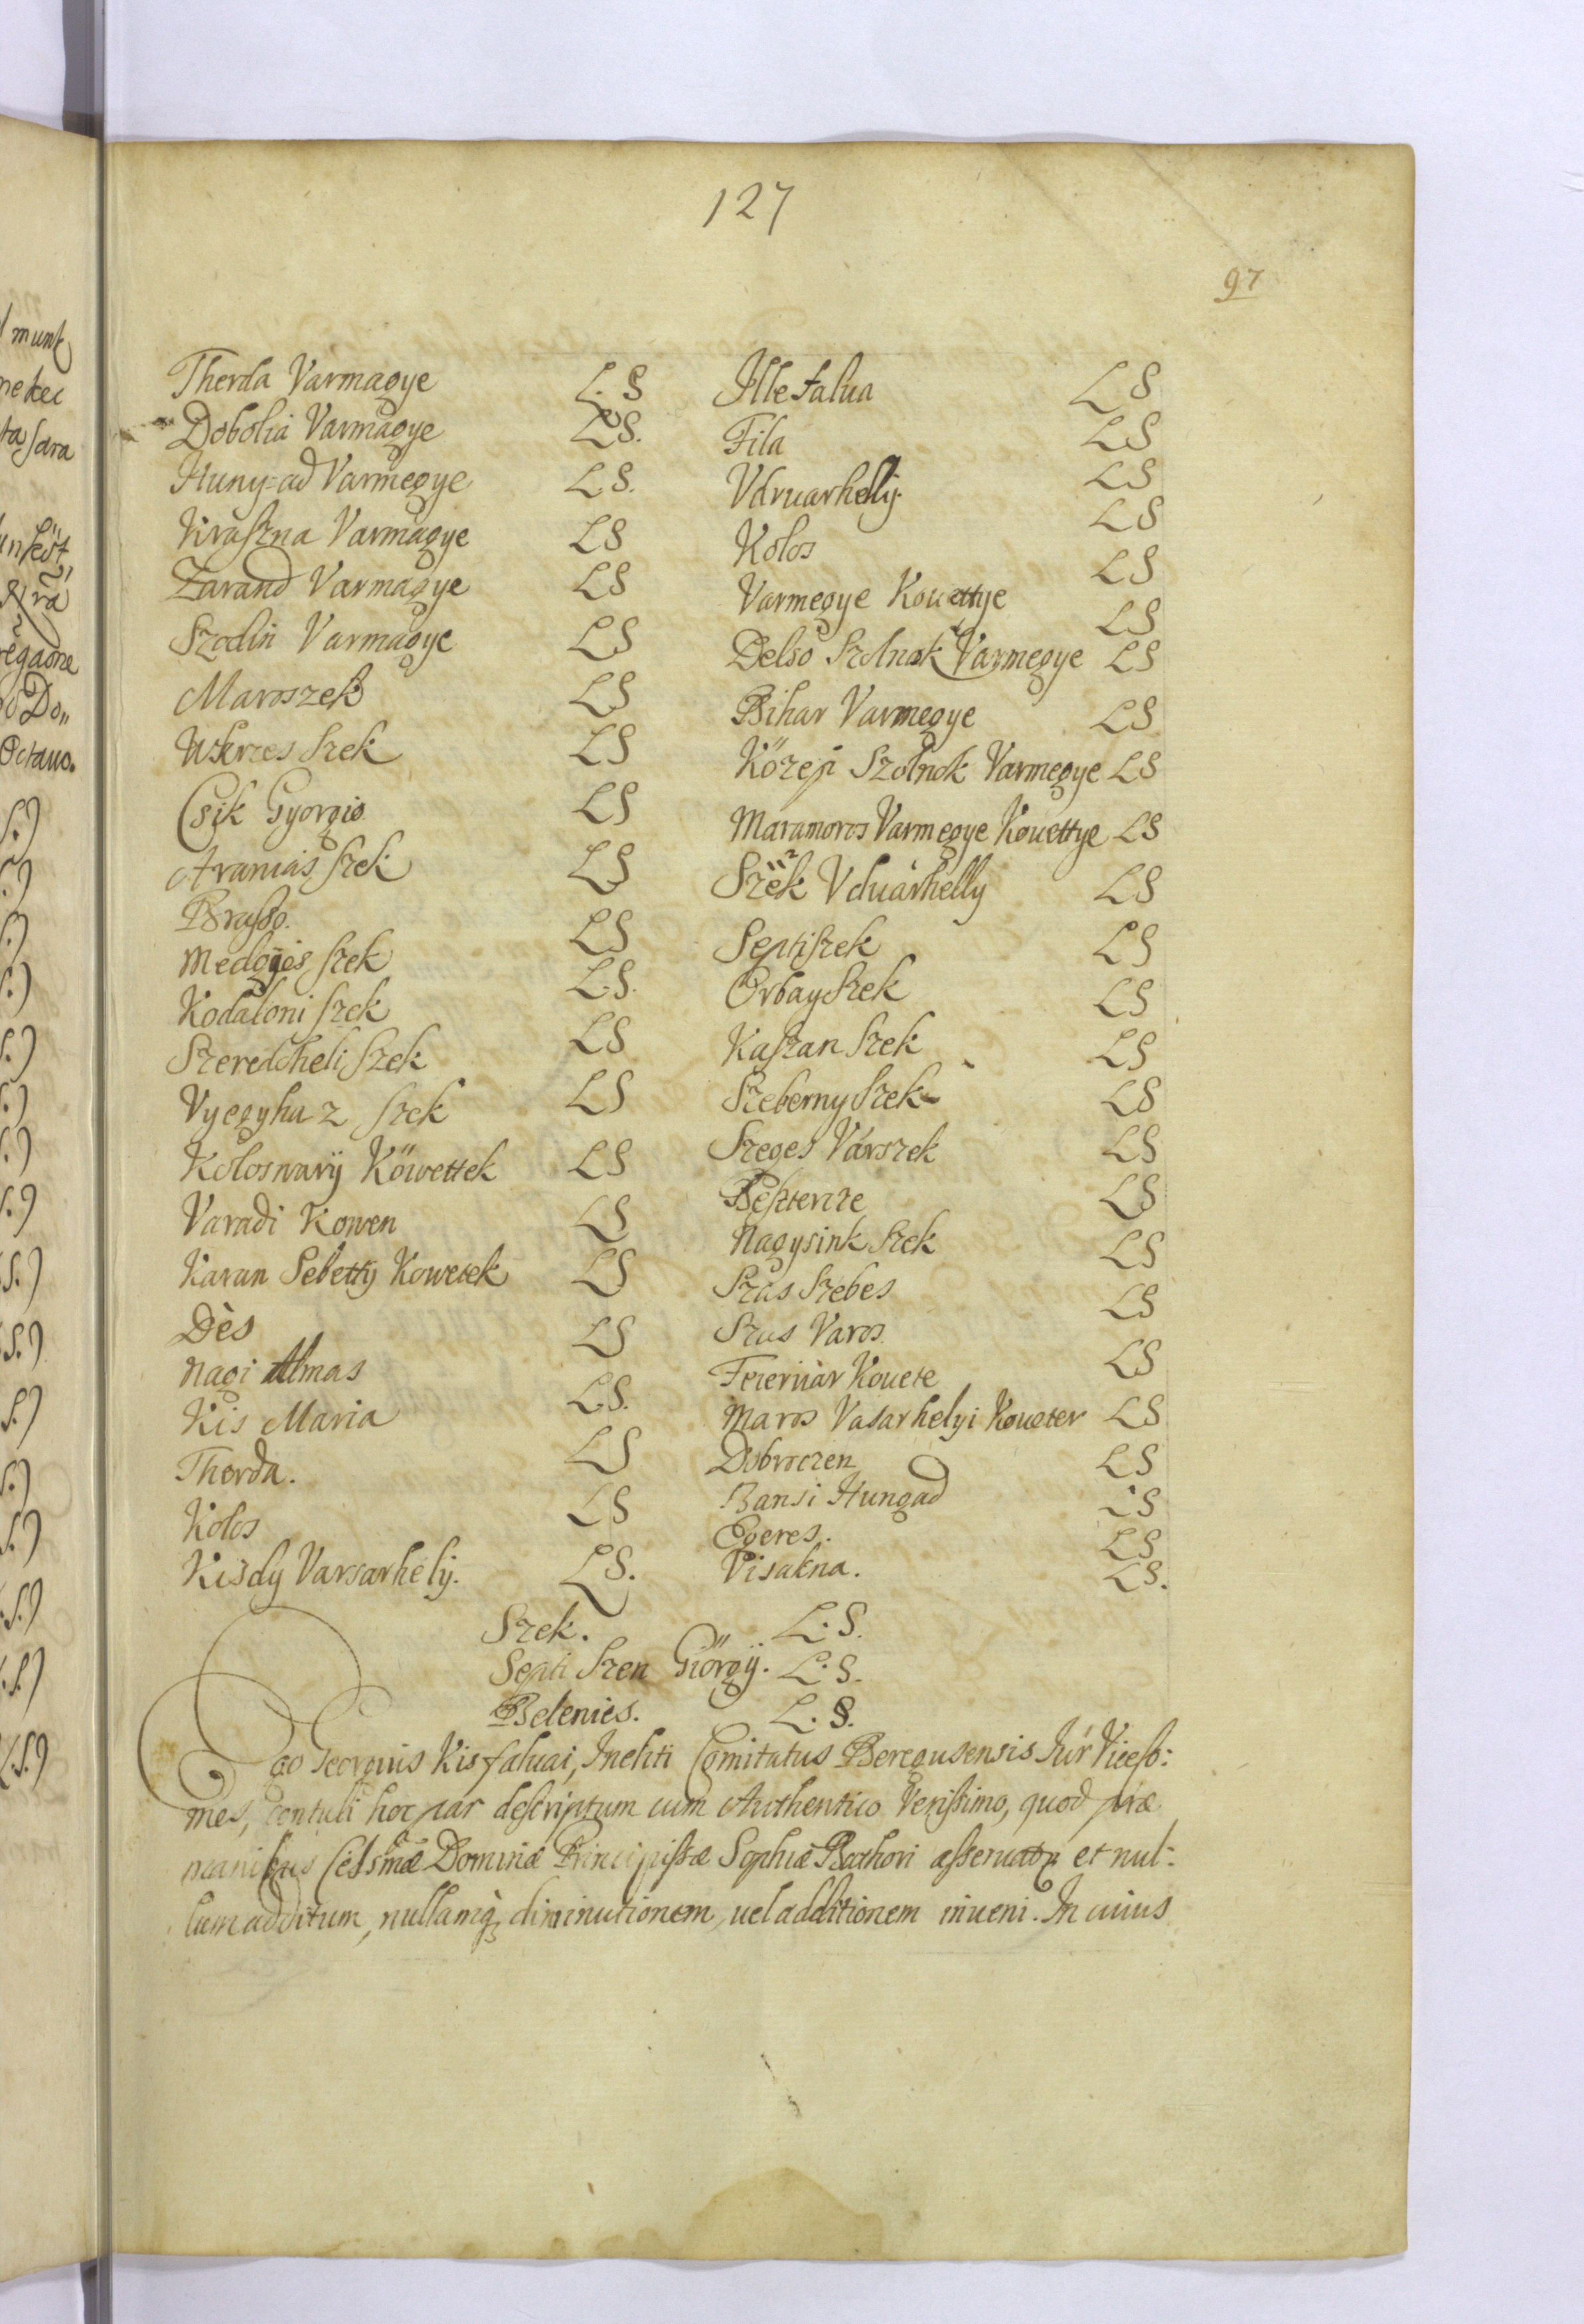 127
97
Therda Varmagye L. S Ille falua L S
Dobolia Varmagye L S. Fila L S
Huny=ad Varmegye L. S. Vdvuarhelly L S
Kraszna Varmagye L S Kolos L S
Zarand Varmagye L S Varmegye Kouettye L S
Szodin Varmagye L S Delso Szolnok Varmegye L S
Maroszek L S Bihar Varmegye L S
Szek L S Közep Szolnok Varmegye L S
Csik Gyorgio L S Maramoros Varmegye Kouettye L S
Aranias szek L S Szek Vduarhelly L S
Brasso. L S Septiszek L S
Medgyes szek L. S. Orbay Szek L S
Kodaloni szek L S Kaszan Szek L S
Szeredcheli Szek L S Szeberny Szek L S
Vyegyhaz szek L S Szeges Várszek L S
Kolosvarÿ Köwettek L S Besztercze L S
Varadi Kowen L S Nagysink Szek L S
Karan Sebetty Kowetek L S Szas Szebes L S
Dès L S Szas Varos L S
Nagi Almas L. S. Feieruàr Kouete L S
Kis Maria L S Maros Vasarhelyi Koueter L S
Thorda. L S Dobroczen L S
Kolos L S Bansi Hungad L S
Kisdy Varsarhely. L S. Egeres. L S
Visakna. L S.
Szek. L. S.
Septi Szen Giörgÿ. L. S.
Belenies. L. S.
Ego Georgius Kisfaluai, Incliti Comitatus Beregusensis Jur Viceco:
mes, contuli hoc par descriptum cum Authentico Verissimo, quod præ
manibus Celsmæ Dominæ Principissæ Sophiæ Bathori asseruatur et nul:
lum additum, nullamq; diminutionem, uel additionem inueni. In cuius